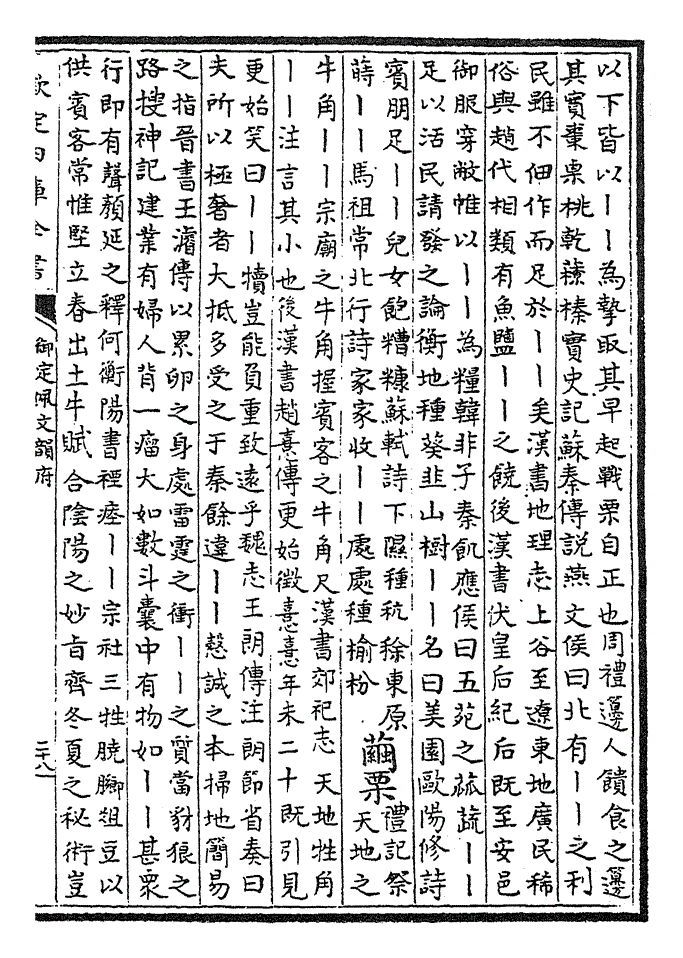 以下皆以丨丨為摯取其早起戰栗自正也周禮籩人饋食之籩
其實棗栗桃乾䕩榛實史記蘇秦傳説燕文侯曰北有丨丨之利
民雖不佃作而足於丨丨矣漢書地理志上谷至遼東地廣民稀
俗與趙代相類有魚鹽丨丨之饒後漢書伏皇后紀后既至安邑
御服穿敝惟以丨丨為糧韓非子秦飢應侯曰五苑之蓏蔬丨丨
足以活民請發之論衡地種葵韭山樹丨丨名曰美園歐陽修詩
賓朋足丨丨兒女飽糟糠蘇軾詩下隰種秔稌東原
蒔丨丨馬祖常北行詩家家收丨丨處處種榆枌
繭栗
禮記祭
天地之
牛角丨丨宗廟之牛角握賓客之牛角尺漢書郊祀志天地牲角
丨丨注言其小也後漢書趙憙傳更始徵憙憙年未二十既引見
更始笑曰丨丨犢豈能負重致遠乎魏志王朗傳注朗節省奏曰
夫所以極奢者大抵多受之于秦餘違丨丨慤誠之本掃地簡易
之指晉書王濬傳以累卵之身處雷霆之衝丨丨之質當豺狼之
路搜神記建業有婦人背一瘤大如數斗囊中有物如丨丨甚衆
行即有聲顏延之釋何衡陽書禋瘞丨丨宗社三牲曉腳俎豆以
供賓客常惟堅立春出土牛賦合陰陽之妙旨齊冬夏之秘術豈
欽定四庫全書
御定佩文韻府
二十八